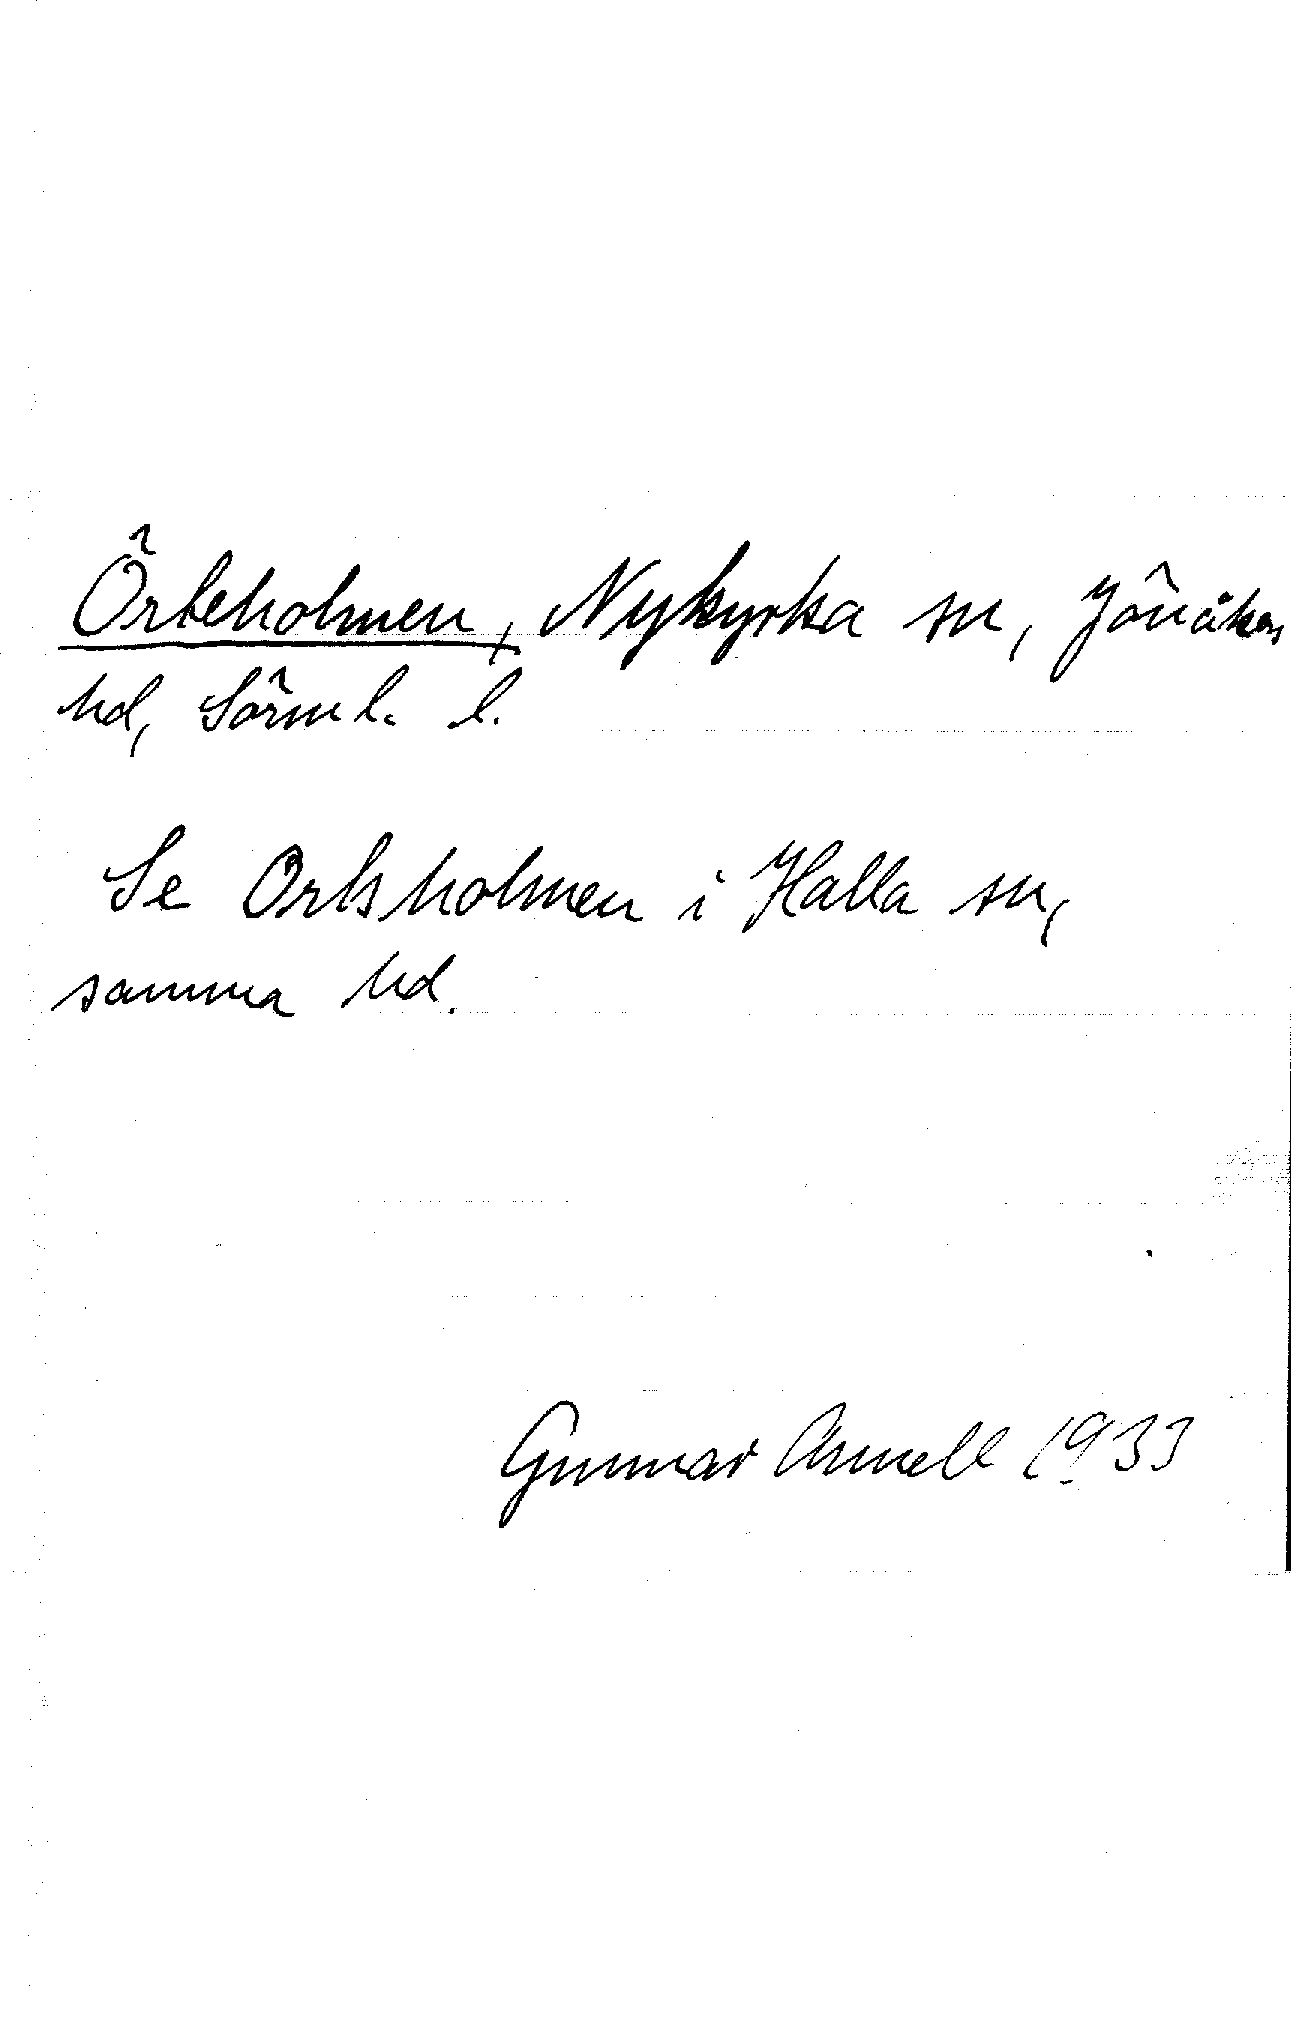 Örbeholmen, Nykyrka sn, Jönåkers
hd, Sörml. l.
Se Orbsholmen i Halla sn,
samma hd.
Gunnar Arnell 1933